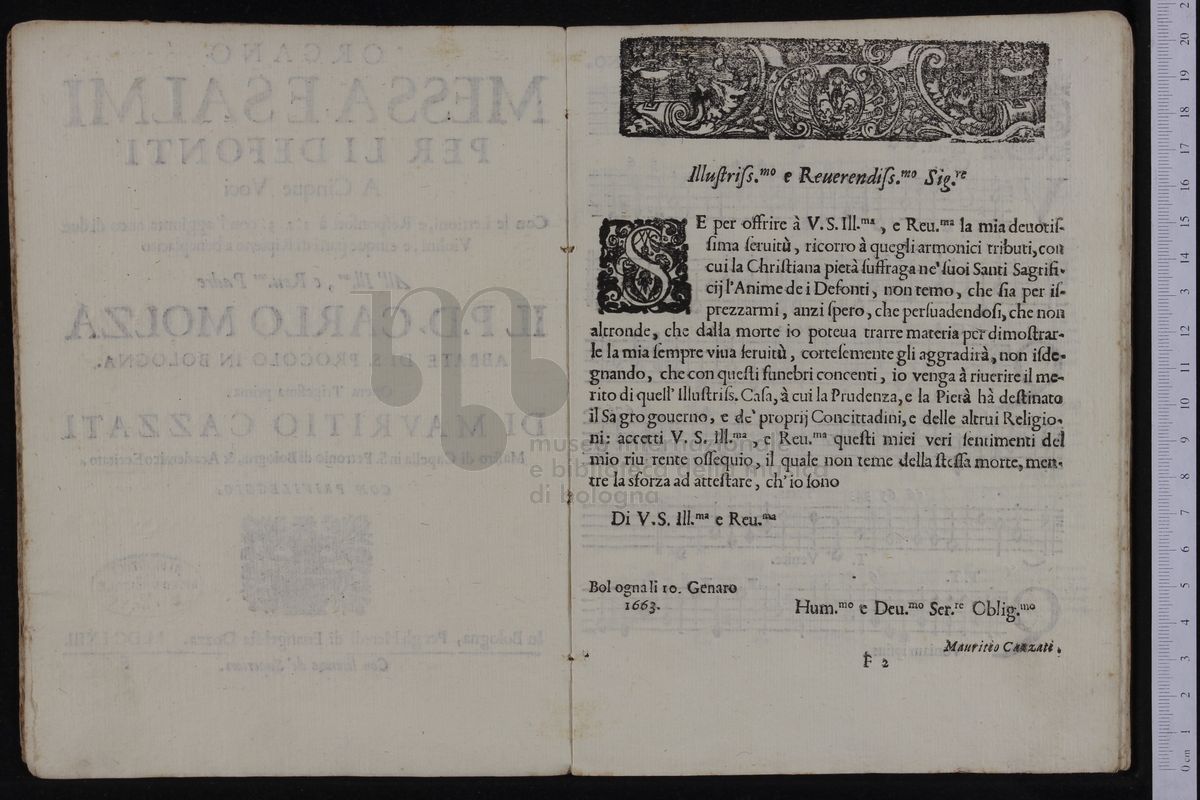 ORGANO
MESSA E SALMI
PER LI DEFONTI
A Cinque Voci
IL P. D. CARLO MOLZA
ABBATE DI S. PROCOLO IN BOLOGNA.
Opera Trigesima prima
DI MAVRITIO CAZZATI
CON PRIVILEGGIO.
Illuſtriſs.mo e Reuerendiſs.mo Sig.re
SE per offrire à V. S. Ill.ma , e Reu.ma la mia deuotiſ-
ſima ſeruitù , ricorro à quegli armonici tributi, con
cui la Chriſtiana pietà ſuffraga ne' ſuoi Santi Sagrifi-
cij l'Anime de i Defonti , non temo , che ſia per iſ-
prezzarmi , anzi ſpero , che perſuadendoſi, che non
altronde , che dalla morte io poteua trarre materia per dimoſtrar-
le la mia ſempre viua ſeruitù , corteſemente gli aggradirà, non iſde-
gnando , che con queſti funebri concenti , io venga à riuerire il me-
rito di quell' Illuſtriſs. Caſa, à cui la Prudenza, e la Pietà hà deſtinato
il Sagro gouerno , e de' proprij Concittadini, e delle altrui Religio-
ni: accetti V. S. Ill.ma , e Reu.ma queſti miei veri ſentimenti del
mio riu rente oſſequio , il quale non teme della ſteſſa morte, men-
tre la sforza ad atteſtare , ch' io ſono
Di V. S. Ill.ma e Reu.ma
Bologna li 10. Genaro
1663.
Hum.mo e Deu.mo Ser.re Oblig.mo
Mauritio Cazzati.
F 2
museo internazionale
e biblioteca della musica
di bologna